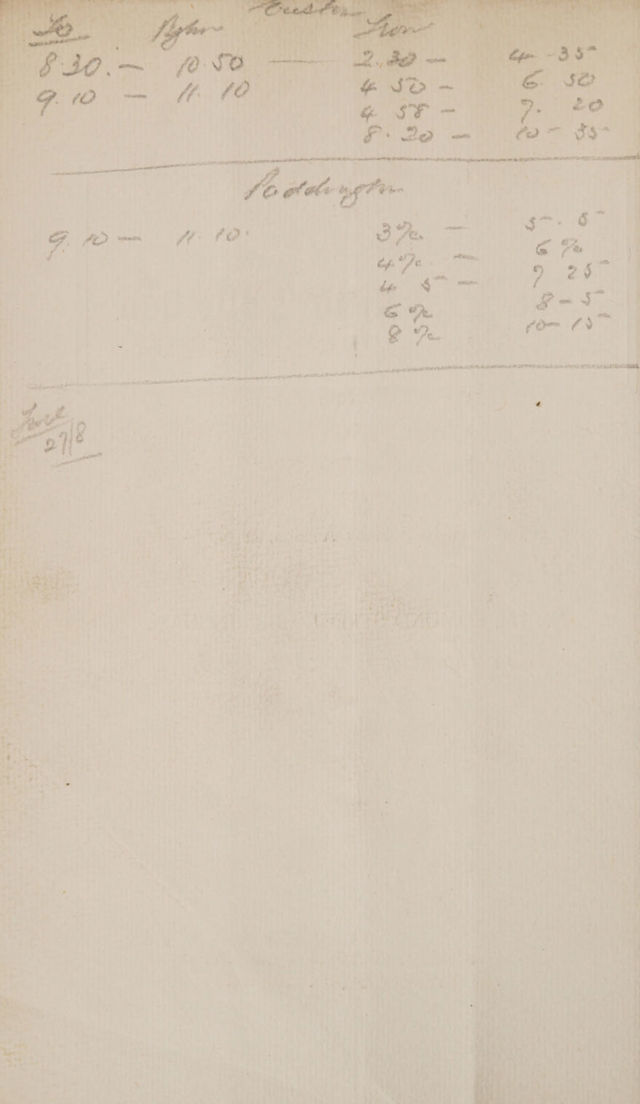 Euston
To Bghm From
8.30. — 10 50 — 2.30 — 4 - 35
9. 10 — 11. 10 4 50 — 6 50
4 58 — 7. 20
8. 20 — 10 - 35
Paddington
9. 10 — 11. 10. 3 % — 5. 5
4 %. — 6 %
4 5 — 7 25
6 % 8 - 5
8 % 10 - 15
Fare
27/8